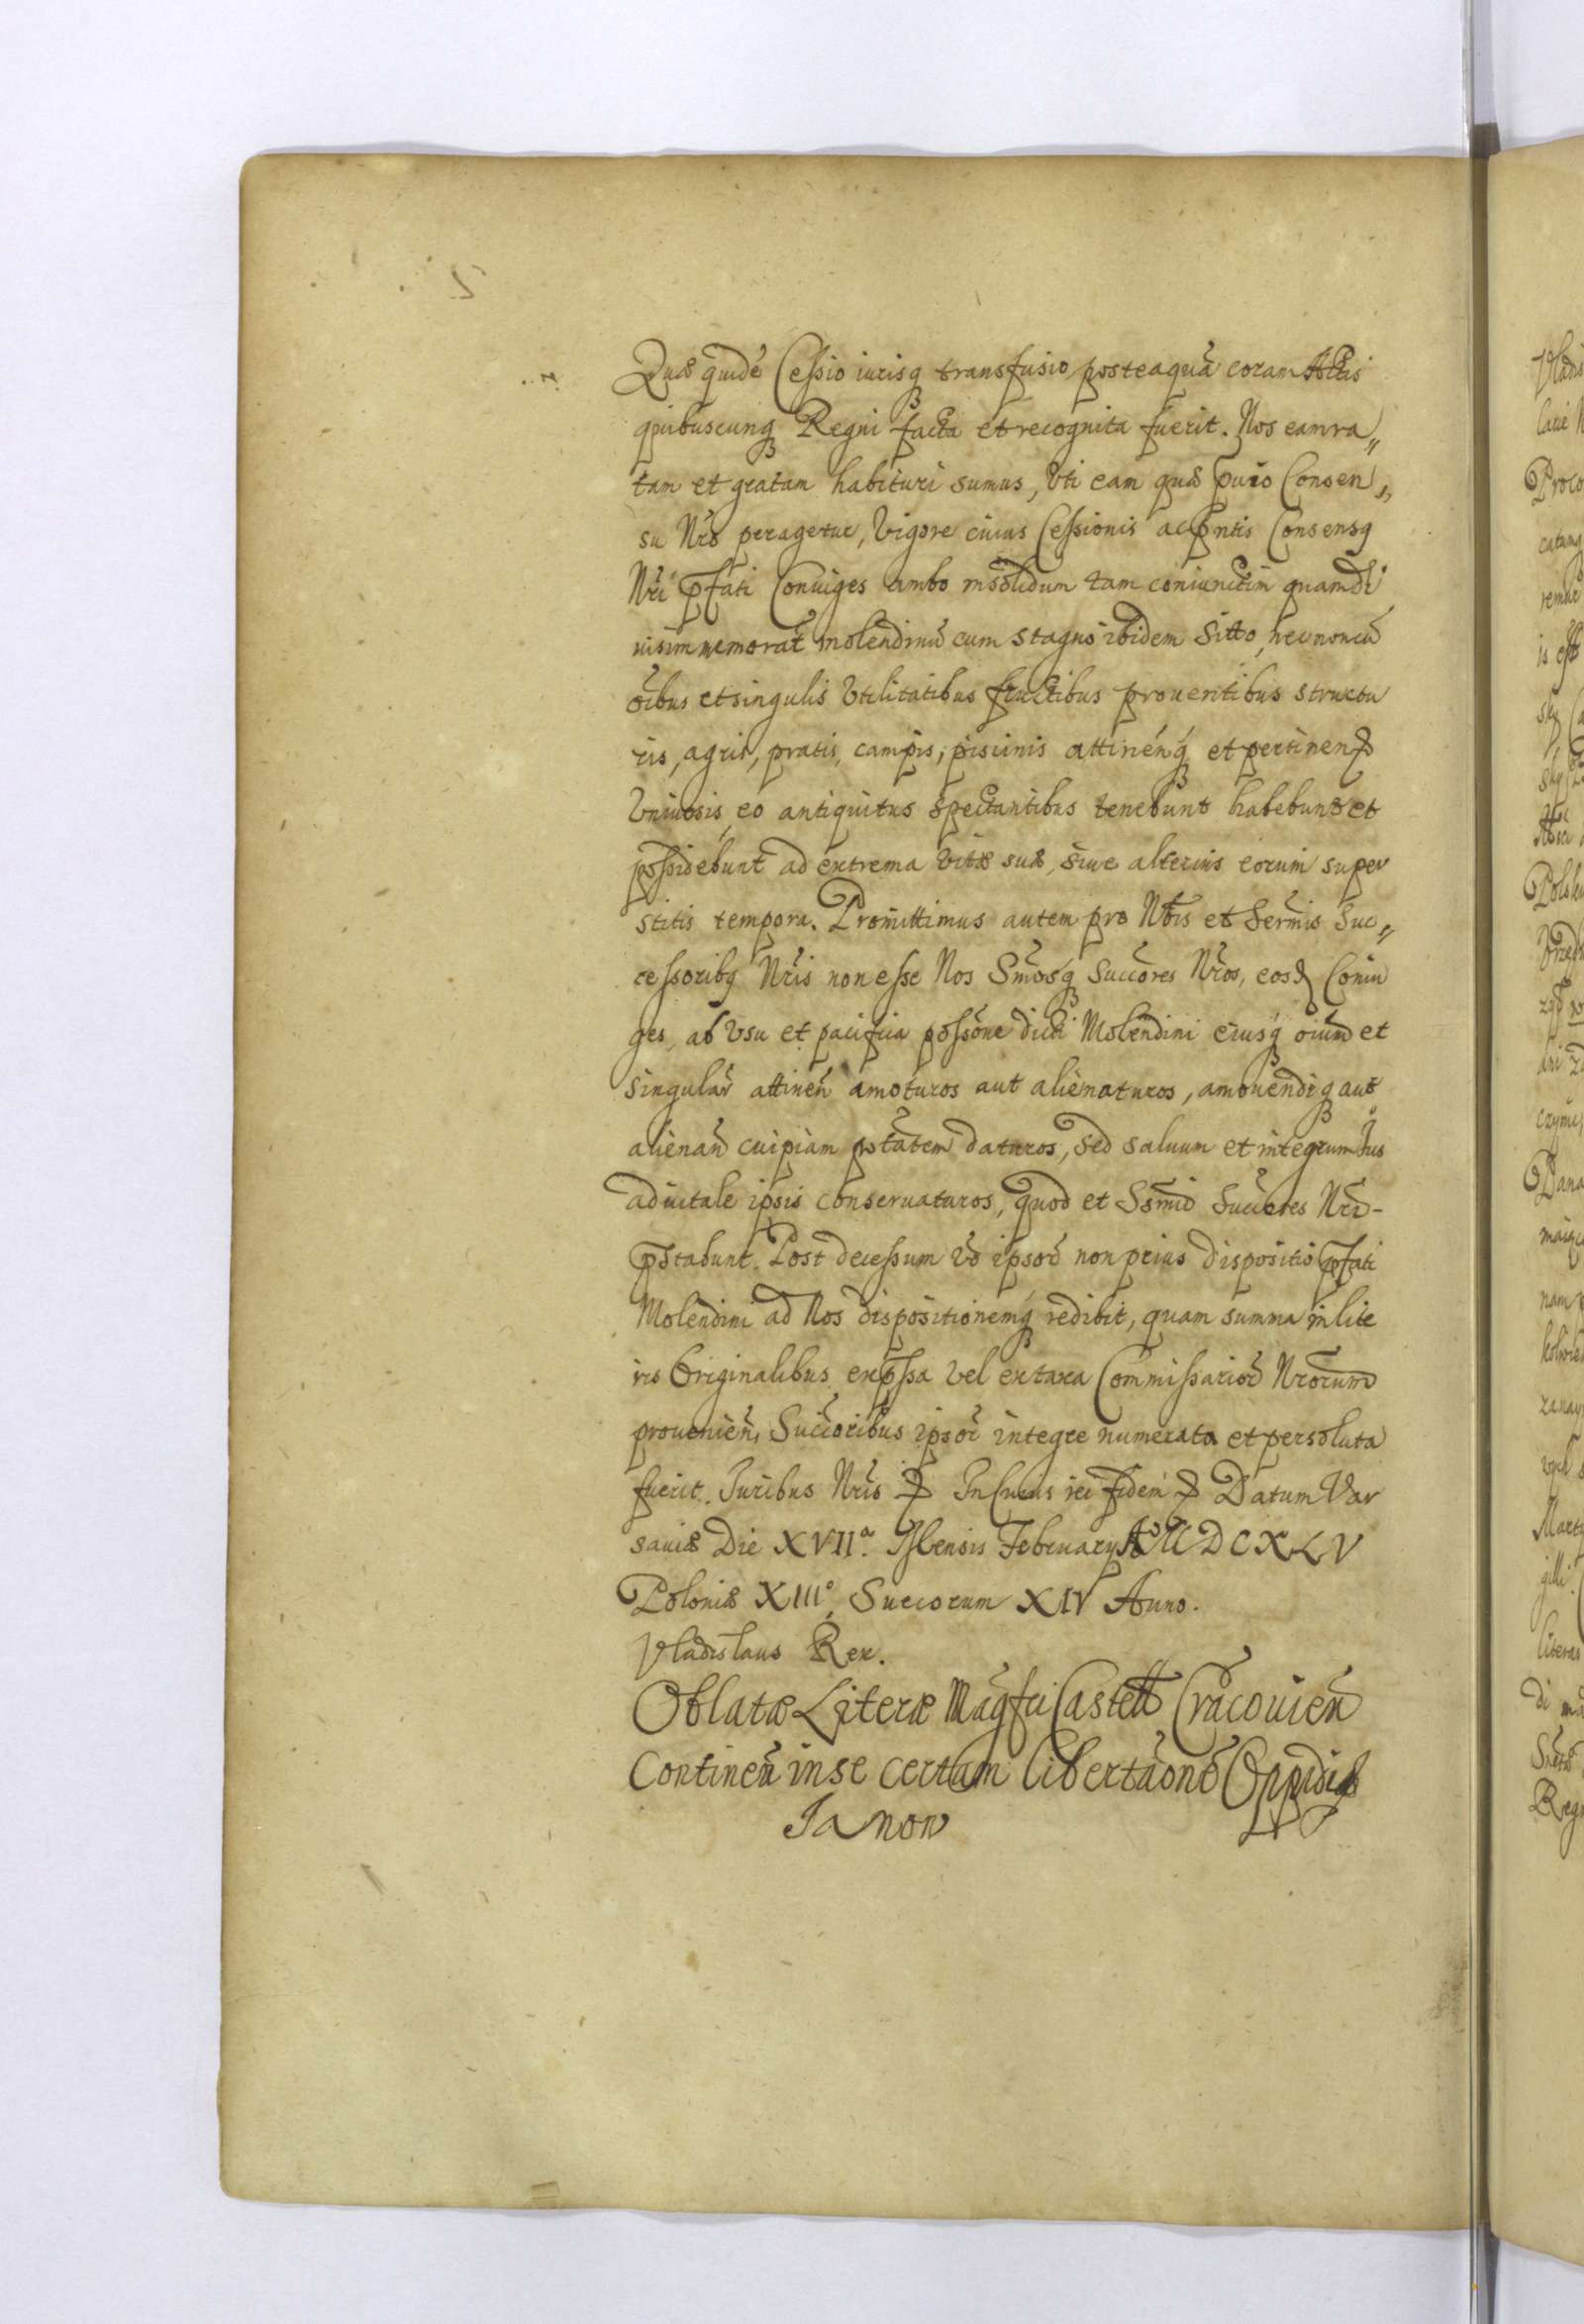 Quæ quidẽ Cessio iurisq transfusio posteaquã coram Actis
quibuscunq Regni facta et recognita fuerit. Nos eam ra„
tam et gratam habituri sumus, Vti eam quæ puro Consen„
su Nrõ peragetur, Vigore cuius Cessionis ac pñtis Consensq
Nrĩ pfati Coniuges ambo insolidum tam coniunctim quam di
uisim memorat̃ molendinũ cum stagno ibidem Sitto, necnon cũ
oĩbus et singulis Vtilitatibus fructibus prouentibus structu
ris, agris, pratis, campis, piscinis attineñq et pertineñ
Vniuersis, eo antiquitus spectantibus tenebunt habebunt et
possidebunt ad extrema vitæ suæ, siue alterius eorum super
stitis tempora. Promittimus autem pro Nobis et Sermis Suc„
cessoribq Nrĩs non esse Nos Smosq Succores Nrõs, eosd Coniu
ges, ab Vsu et pacifica possõne dicti Molendini eiusq oĩum et
singular̃ attineñ amoturos aut alienaturos, amouendiq aut
alienañ cuipiam ptãtem daturos, sed saluum et integrum Ius
aduitale ipsis conseruaturos, quod et Ssmi Succores Nrĩ-
pstabunt. Post decessum Vo ipsor̃ non prius dispositio pfati
Molendini ad Nos dispositionemq redibit, quam summa in lite
ris Originalibus expssa vel ex taxa Commissarior̃ Nrõrum
prouenieñ, Succoribus ipsor̃ integre numerata et persoluta
fuerit. Iuribus Nrĩs In Cuius rei fidem Datum Var
sauiæ Die XVIIª. Mensis February Aº MDCXLV
Poloniæ XIIIº, Suecorum XIV Anno.
Vladislaus Rex.
Oblatæ Literæ Magfci Castell Cracouieñ
Contineñ in se certam libertãonẽ Oppidi
Ianow